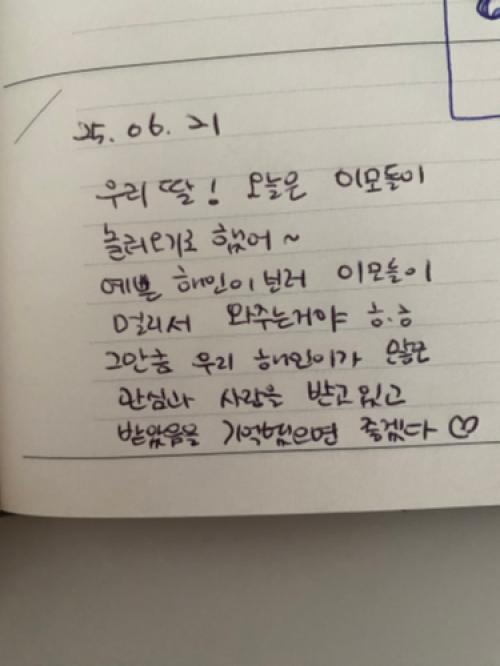 25. 06. 21
우리 딸! 오늘은 이모들이
놀러오기로 했어 ~
예쁜 해인이 보러 이모들이
멀리서 와주는거야 ㅎ.ㅎ
그만큼 우리 해인이가 많은
관심과 사랑을 받고있고
받았음을 기억했으면 좋겠다 ♡